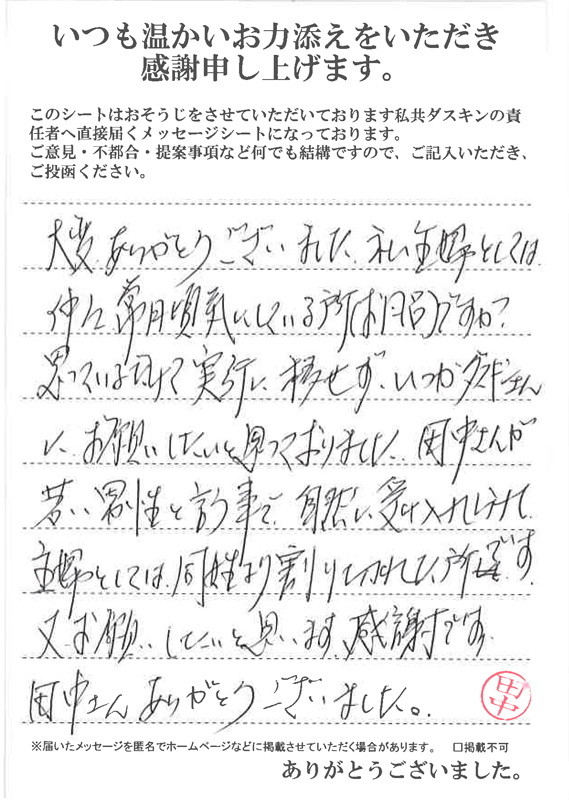 いつも温かいお力添えをいただき
感謝申し上げます。
このシートはおそうじをさせていただいております私共ダスキンの責
任者へ直接届くメッセージシートになっております。
ご意見・不都合・提案事項など何でも結構ですので、ご記入いただき、
ご投函ください。
大変ありがとうございました。私、主婦としては
仲々常日頃気にしている所(お風呂)ですが
思っているだけで実行に移せず、いつかダスキンさん
に、お願いしたいと思っておりました。田中さんが
若い男性と言う事で、自然に受け入れられて
主婦としては、同性より割り切れた所です。
又お願いしたいと思います。感謝です。
田中さんありがとうございました。
田中
※届いたメッセージを匿名でホームページなどに掲載させていただく場合があります。 □掲載不可
ありがとうございました。